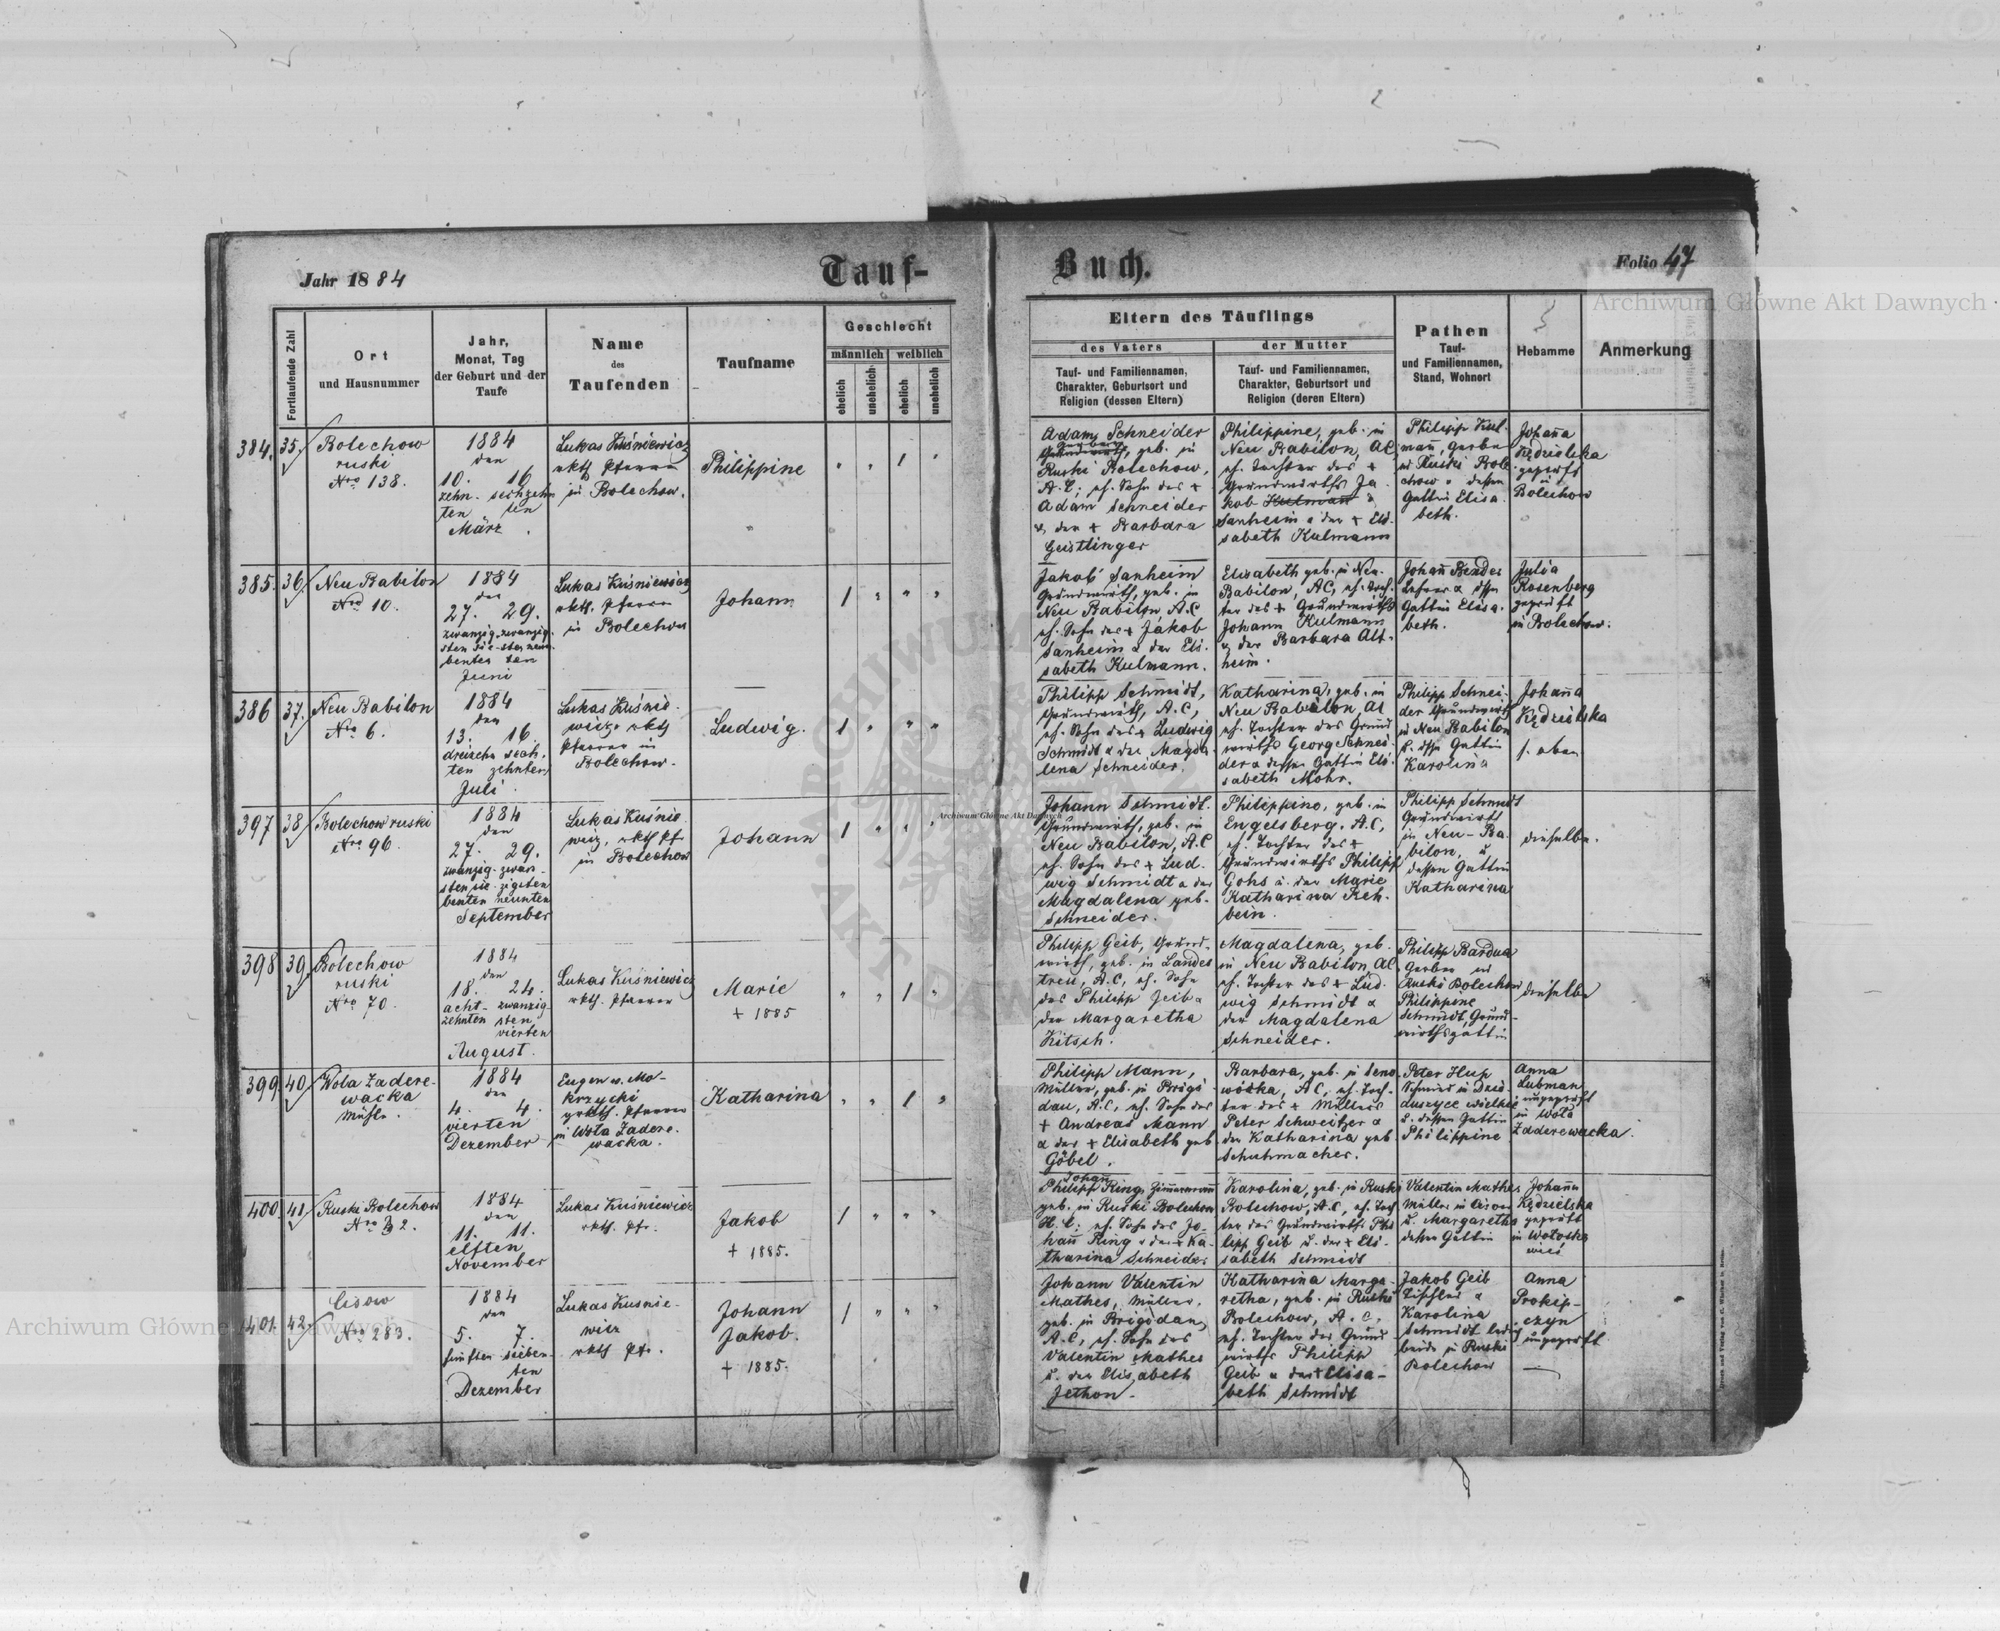 Jahr 1884
Tauf-
Buch.
Folio 47
Archiwum Główne Akt Dawnych
Fortlaufende Zahl
Ort
und Hausnummer
Jahr,
Monat, Tag
der Geburt und der
Taufe
Name
des
Taufenden
Taufname
Geschlecht
männlich weiblich
ehelich
unehelich
ehelich
unehelich
Eltern des Täuflings
des Vaters
der Mutter
Tauf- und Familiennamen,
Charakter, Geburtsort und
Religion (dessen Eltern)
Tauf- und Familiennamen,
Charakter, Geburtsort und
Religion (deren Eltern)
Pathen
Tauf-
und Familiennamen,
Stand, Wohnort
Hebamme
Anmerkung
384. 35.
Bolechow
ruski
Nro 138.
1884
den
10. 16
zehn- sechzehn
ten ten
März
Lukas Kuśniewicz
rkth Pfarrer
in Bolechow.
Philippine
" " 1 "
Adam Schneider
Gerber
geb. in
Ruski Bolechow,
A.C; eh. Sohn des +
Adam Schneider
u. der + Barbara
Geistlinger
Philippine, geb. in
Neu Babilon, AC
eh. Tochter des +
Grundwirths Ja-
kob Kulmann
Sanheim u der + Eli-
sabeth Kulmann
Philipp Kul-
mann, Gerber
in Ruski Bole
chow u dessen
Gattin Elisa
beth.
Johanna
Kędzielska
geprüft
Bolechow
385. 36.
Neu Babilon
Nro 10.
1884
den
27. 29.
zwanzig- zwanzig-
sten sie- sten neun-
benten ten
Juni
Lukas Kuśniewicz
rkth. Pfarrer
in Bolechow
Johann
1 " " "
Jakob Sanheim
Grundwirth, geb. in
Neu Babilon A.C
eh. Sohn des + Jakob
Sanheim u der Eli-
sabeth Kulmann.
Elisabeth geb. in Neu-
Babilon, AC, eh. Toch-
ter des + Grundwirths
Johann Kulmann
u. der Barbara Alt-
heim.
Johann Bender
Lehrer u dssn
Gattin Elisa-
beth.
Julia
Rosenberg
geprüft
in Bolechow.
386 37.
Neu Babilon
Nro 6.
1884
den
13. 16.
dreizehn sech-
ten zehnten
Juli
Lukas Kuśnie-
wicz rkth
Pfarrer in
Bolechow.
Ludwig.
1 " " "
Philipp Schmidt,
Grundwirth, A.C,
eh. Sohn des + Ludwig
Schmidt u der Magda
lena Schneider.
Katharina, geb. in
Neu Babilon AC
eh. Tochter des Grund
wirths Georg Schnei-
der u dessen Gattin Eli-
sabeth Mohr.
Philipp Schnei-
der Grundwirth
in Neu Babilon
u. dssn Gattin
Karolina
Johanna
Kędzielska
s. oben
397 38
Bolechow ruski
Nro 96.
1884
den
27. 29.
zwanzig- zwan-
sten sie- zigsten
benten neunten
September
Lukas Kuśnie
wicz, rkth Pf
in Bolechow
Johann
1 " " "
Johann Schmidt.
Grundwirth, geb. in
Neu Babilon, A.C
eh. Sohn des + Lud-
wig Schmidt u der
Magdalena geb.
Schneider.
Philippine, geb. in
Engelsberg. A.C,
eh. Tochter des +
Grundwirths Philipp
Gohs u. der Marie
Katharina Reh-
bein.
Philipp Schmidt
Grundwirth
in Neu-Ba-
bilon, u
dessen Gattin
Katharina
dieselbe.
Archiwum Główne Akt Dawnych
398 39.
Bolechow
ruski
Nro 70.
1884
den
18. 24.
acht- zwanzig-
zehnten sten
vierten
August.
Lukas Kuśniewicz
rkth. Pfarrer
Marie
+ 1885
" " 1 "
Philipp Geib, Grund-
wirth, geb. in Landes
treu, A.C, eh. Sohn
des Philipp Geib u
der Margaretha
Kitsch.
Magdalena, geb.
in Neu Babilon, AC
eh. Tochter des + Lud-
wig Schmidt u
der Magdalena
Schneider.
Philipp Bardua
Gerber in
Ruski Bolechow
Philippine
Schmidt, Grund-
wirthsgattin
dieselbe
399 40
Wola Zadere-
wacka
Mühle.
1884
den
4. 4.
vierten
Dezember
Eugen v. Mo-
krzycki
grkth. Pfarrer
in Wola Zadere-
wacka.
Katharina
" " 1 "
Philipp Mann,
Müller, geb. in Brigi
dau, A.C, eh. Sohn des
+ Andreas Mann
u der + Elisabeth geb
Göbel.
Barbara, geb. in Seno
wóska, AC, eh. Toch-
ter des + Müllers
Peter Schweitzer u
der Katharina geb
Schuhmacher.
Peter Hup
Schmied in Dzie
duszyce wielkie
u. dessen Gattin
Philippine
Anna
Lubman
ungeprüft
in Wola
Zaderewacka.
400 41
Ruski Bolechow
Nro 32.
1884
den
11. 11.
elften
November
Lukas Kuśniewicz
rkth. Pfr.
Jakob
+ 1885.
1 " " "
Johann
Philipp Ring, Zimmermann
geb. in Ruski Bolechow
A.C; eh. Sohn des Jo-
hann Ring u der + Ka-
tharina Schneider
Karolina, geb. in Ruski
Bolechow, A.C, eh. Toch
ter des Grundwirths Phi
lipp Geib u. der + Eli-
sabeth Schmidt
Valentin Mathes
Müller in Lisow
u. Margaretha
dessen Gattin
Johanna
Kędzielska
geprüft
in Wołoska
wieś
401. 42.
Lisow
Nro 283.
1884
den
5. 7.
fünften sieben-
ten
Dezember
Lukas Kuśnie-
wicz
rkth Pfr.
Johann
Jakob.
+ 1885.
1 " " "
Johann Valentin
Mathes, Müller,
geb. in Brigidau,
A.C, eh. Sohn des
Valentin Mathes
u. der Elisabeth
Jethon.
Katharina Marga-
retha, geb. in Ruski
Bolechow, A.C,
eh. Tochter des Grund
wirths Philipp
Geib u der + Elisa-
beth Schmidt
Jakob Geib
Tischler u
Karolina
Schmidt ledig
beide in Ruski
Bolechow
Anna
Prokip-
czyn
ungeprüft
Archiwum Główne Akt Dawnych